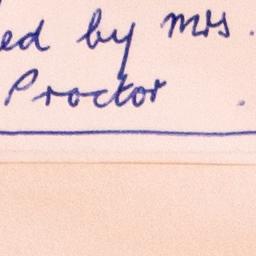 ed by Mrs.
Proctor.